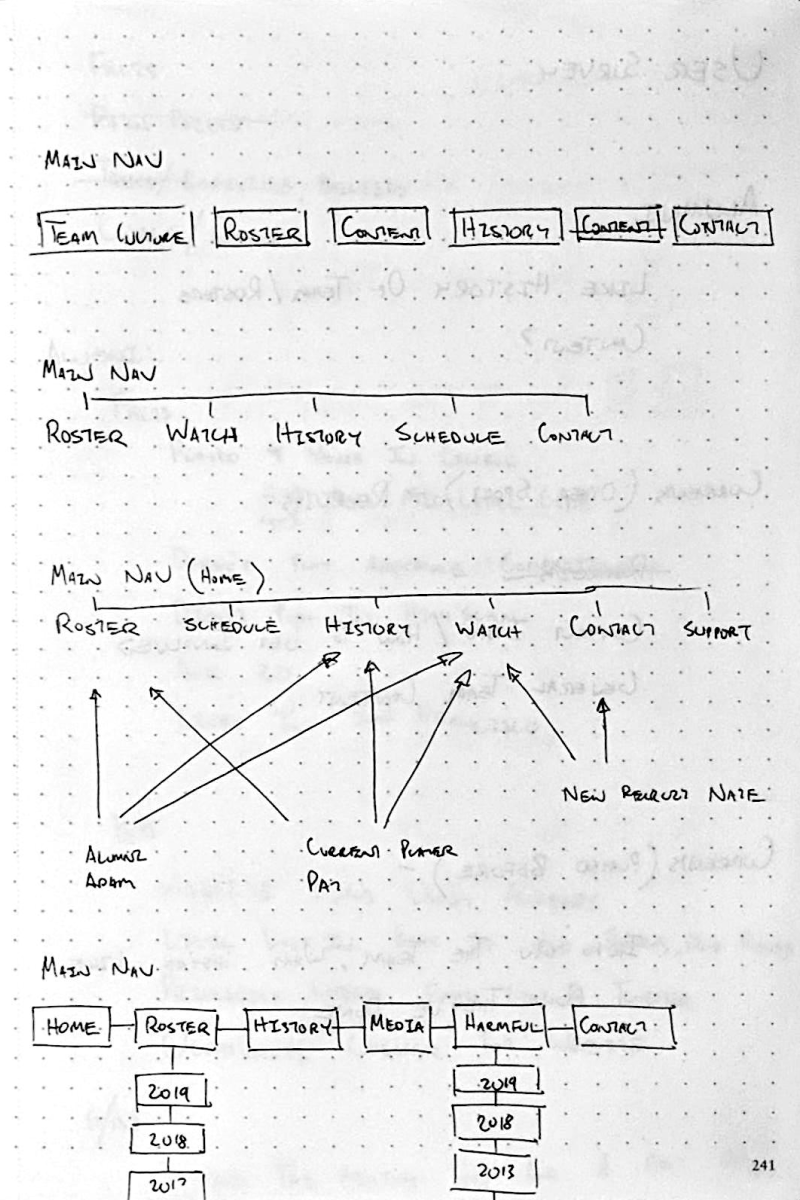 MAIN NAV
TEAM CULTURE ROSTER CONTENT HISTORY CONTENT CONTACT
MAIN NAV
ROSTER WATCH HISTORY SCHEDULE CONTACT
MAIN NAV (HOME)
ROSTER SCHEDULE HISTORY WATCH CONTACT SUPPORT
NEW RECRUIT NATE
ALUMNI
ADAM
CURRENT PLAYER
PAT
MAIN NAV
HOME ROSTER HISTORY MEDIA HARMFUL CONTACT
2019 2019
2018 2018
2017 2013
241